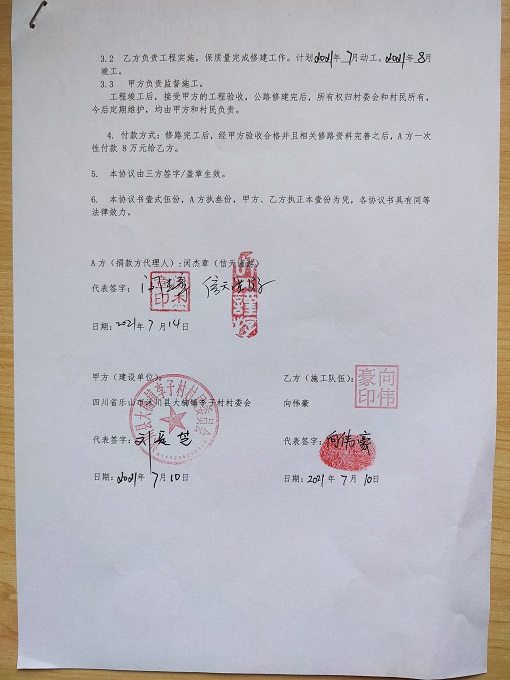 3.2 乙方负责工程实施，保质量完成修建工作。计划2021年7月动工，2021年8月
竣工。
3.3 甲方负责监督施工。
工程竣工后，接受甲方的工程验收，公路修建完后，所有权归村委会和村民所有，
今后定期维护，均由甲方和村民负责。
4. 付款方式：修路完工后，经甲方验收合格并且相关修路资料完善之后，A方一次
性付款 8 万元给乙方。
5. 本协议由三方签字/盖章生效。
6. 本协议书壹式伍份，A方执叁份，甲方、乙方执正本壹份为凭，各协议书具有同等
法律效力。
A方（捐款方代理人）：闵杰章（信天谨游）
代表签字：
日期：2021年7月14日
甲方（建设单位）：
四川省乐山市沐川县大楠镇李子村村委会
代表签字：
日期：2021年7月10日
乙方（施工队伍）：
向伟豪
向伟豪印
代表签字：向伟豪
日期：2021年7月10日